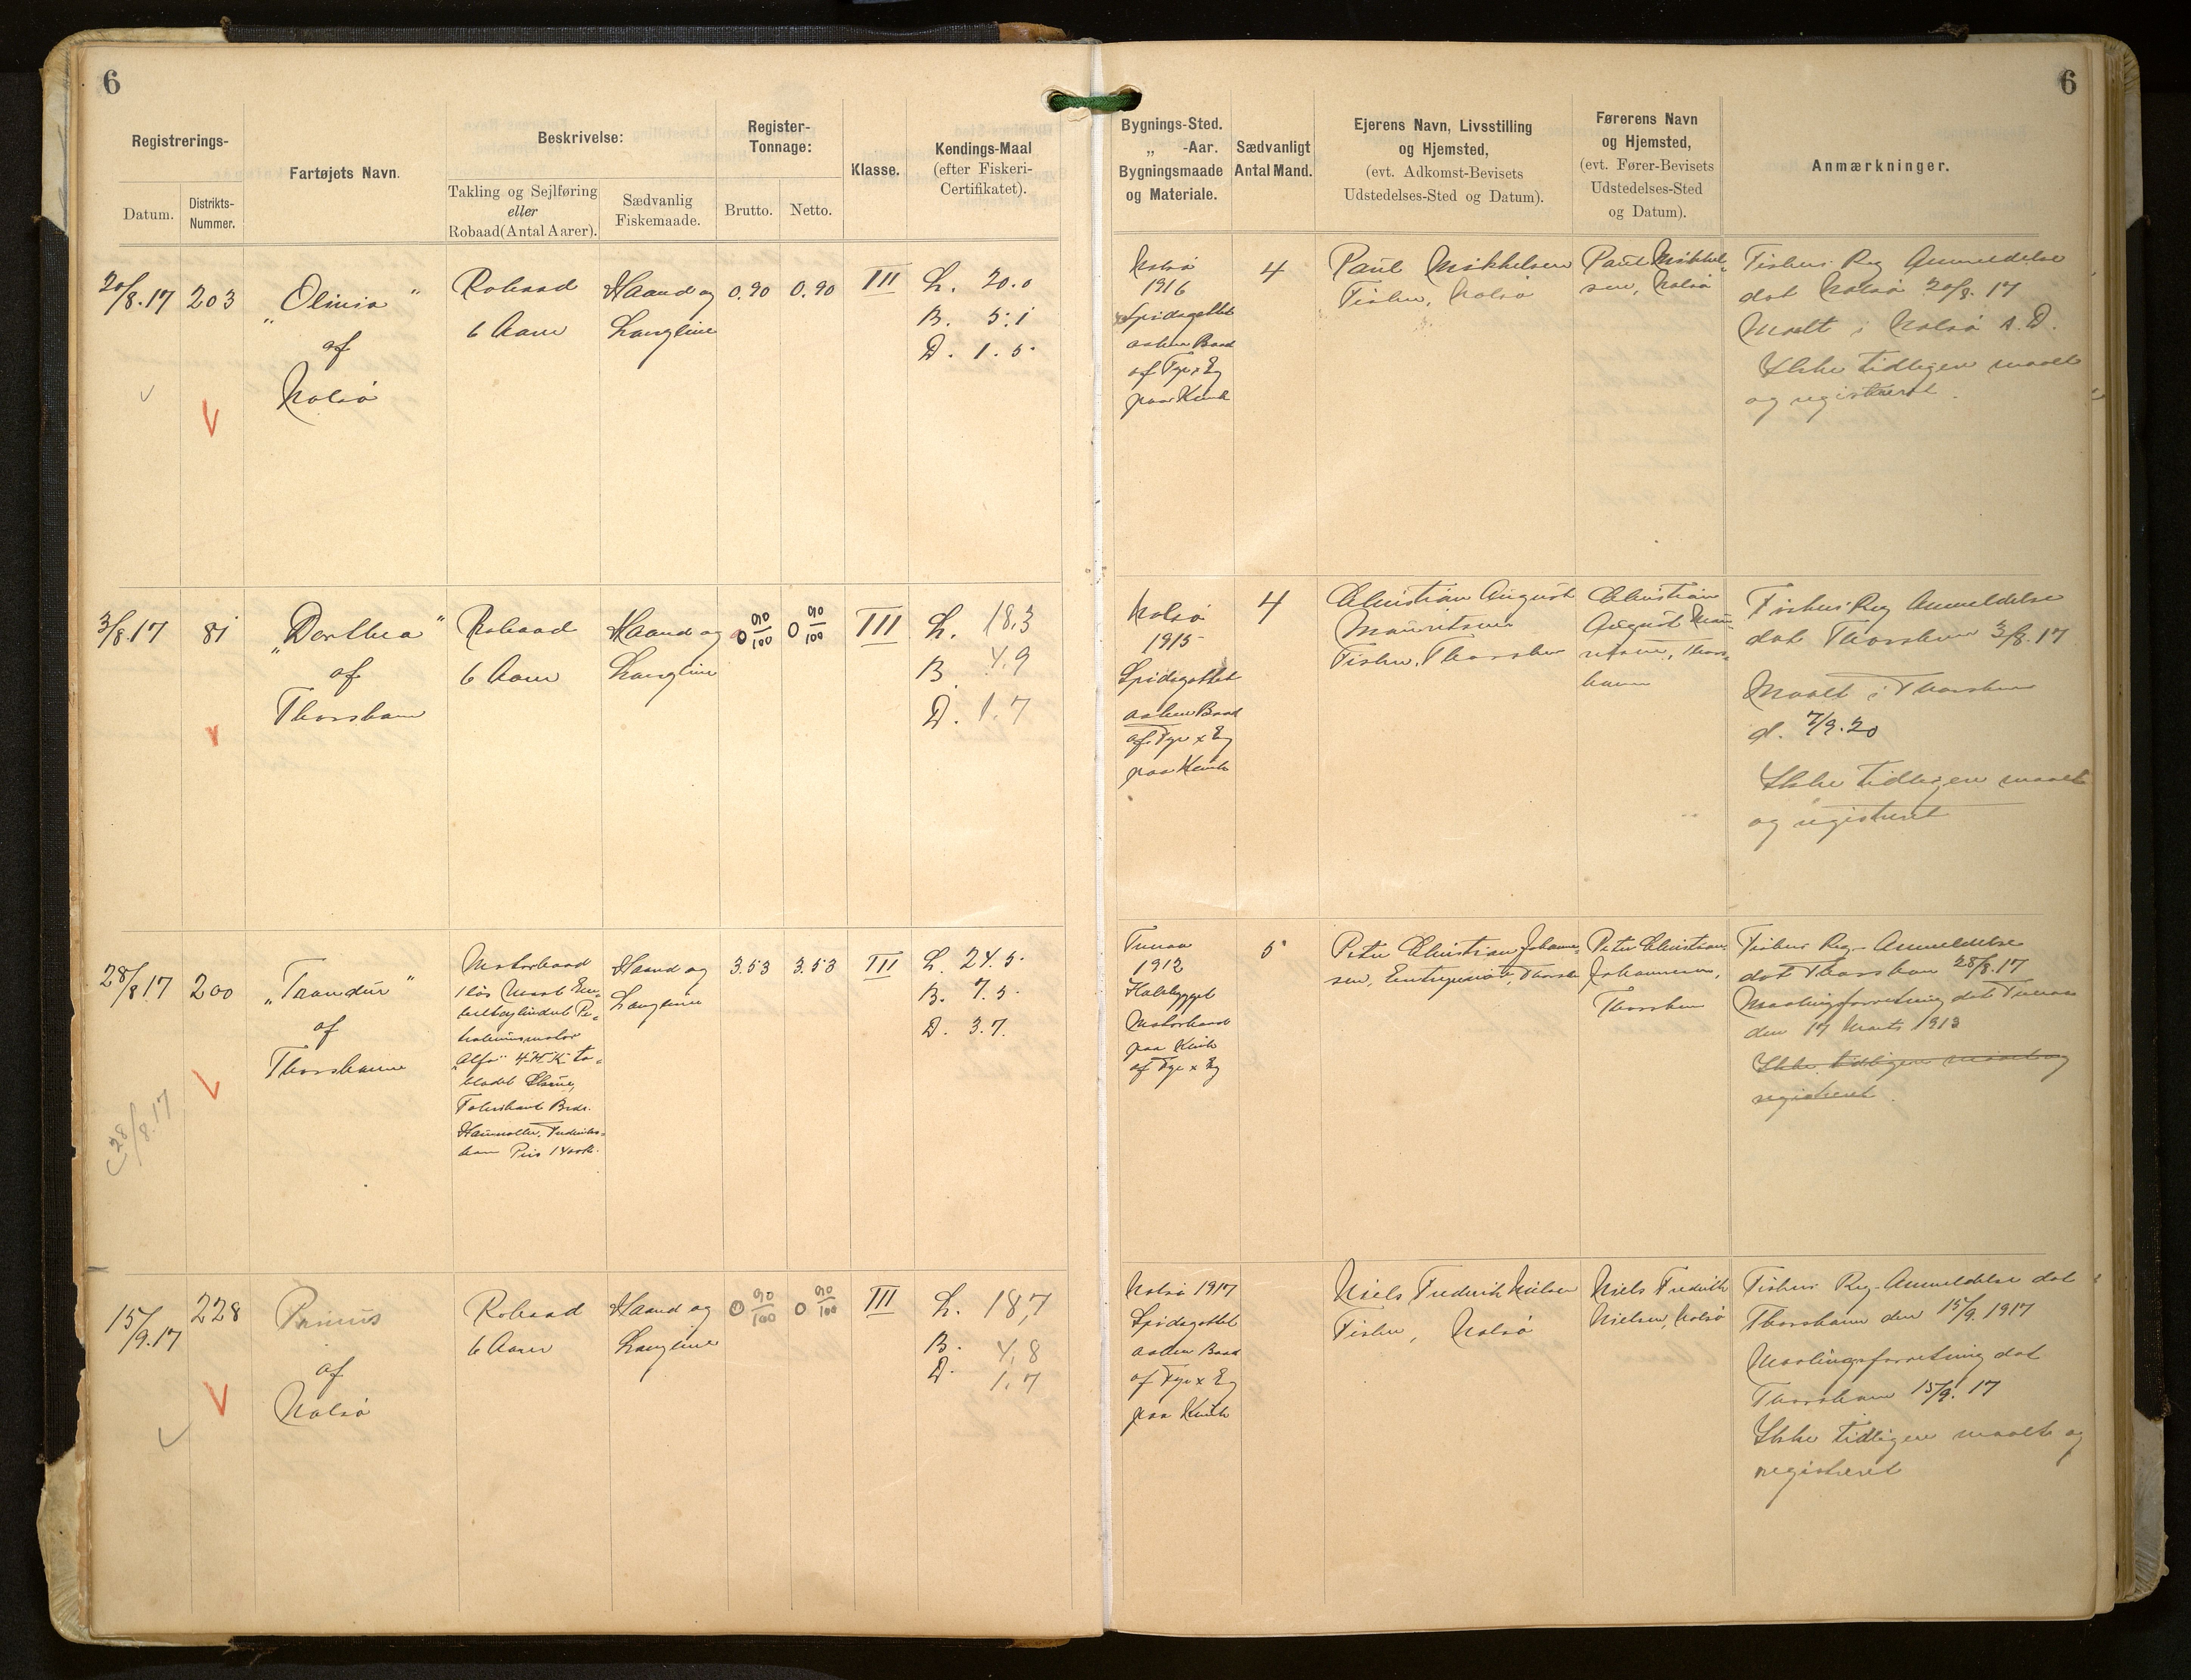 6
6
Registrerings-
Datum.
Distrikts-
Nummer.
Fartøjets Navn.
Beskrivelse:
Takling og Sejlføring
eller
Robaad (Antal Aarer).
Sædvanlig
Fiskemaade.
Register-
Tonnage:
Brutto.
Netto.
Klasse.
Kendings-Maal
(efter Fiskeri-
Certifikatet).
Bygnings-Sted.
„ -Aar.
Bygningsmaade
og Materiale.
Sædvanligt
Antal Mand.
Ejerens Navn, Livsstilling
og Hjemsted,
(evt. Adkomst-Bevisets
Udstedelses-Sted og Datum).
Førerens Navn
og Hjemsted,
(evt. Fører-Bevisets
Udstedelses-Sted
og Datum).
Anmærkninger.
20/8.17
203
„Olivia"
af
Nolsö
Robaad
6 Aarer
Haand og
Langline
0.90
0.90
III
L. 20.0
B. 5.1
D. 1.5
Nolsö
1916
Spidsgattet
aaben Baad
af Fyr x Eg
paa Kravel
4
Paul Mikkelsen
Fisker, Nolsö
Paul Mikkel-
sen, Nolsö
Fisker. Reg Anmeldelse
dat Nolsö 20/8. 17
Maalt i Nolsö s. D.
Ikke tidligere maalt
og registreret.
3/8.17
81
„Dorthea"
af
Thorshavn
Robaad
6 Aarer
Haand og
Langline
0 90/100
0 90/100
III
L. 18,3
B. 4.9
D. 1.7
Nolsö
1915
Spidsgattet
aaben Baad
af Fyr x Eg
4
Christian August
Mauritsen
Fisker, Thorshavn
Christian
August Mau-
ritsen, Thors-
havn
Fisker. Reg Anmeldelse
dat Thorshavn 3/8. 17
Maalt i Thorshavn
d. 7/9.20
Ikke tidligere maalt
og registreret
28/8 17
200
„Trondur"
af
Thorshavn
28/8.17
Motorbaad
1 løs Mast En-
keltcylindret Pe-
troleumsmotor
„Alfa" 4 H.K. to-
bladet Skrue,
Fabrikant Brdr.
Houmøller, Frederiks-
havn Pris 1400 Kr.
Haand og
Langline
3.53
3.53
III
L. 24.5
B. 7.5
D. 3.7.
Tveraa
1912
Halvbygget
Motorbaad
af Fyr x Eg
5
Peter Christian Johanne-
sen, Entreprenør, Thorshavn
Peter Christian
Johannesen,
Thorshavn
Fisker Reg. Anmeldelse
dat Thorshavn 28/8.17
Maalingsforretning dat Tveraa
den 17 Marts 1913
Ikke tidligere maalt og
registreret.
15/9.17
228
Primus
af
Nolsö
Robaad
6 Aarer
Haand og
Langline
0 90/100
0 90/100
III
L. 18,7
B. 4,8
D. 1,7
Nolsö 1917
Spidsgattet
aaben Baad
af Fyr x Eg
Niels Frederik Nielsen
Fisker, Nolsö
Niels Frederik
Nielsen, Nolsö
Fisker. Reg-Anmeldelse dat
Thorshavn den 15/9. 1917
Maalingsforretning dat
Thorshavn 15/9. 17
Ikke tidligere maalt og
registreret